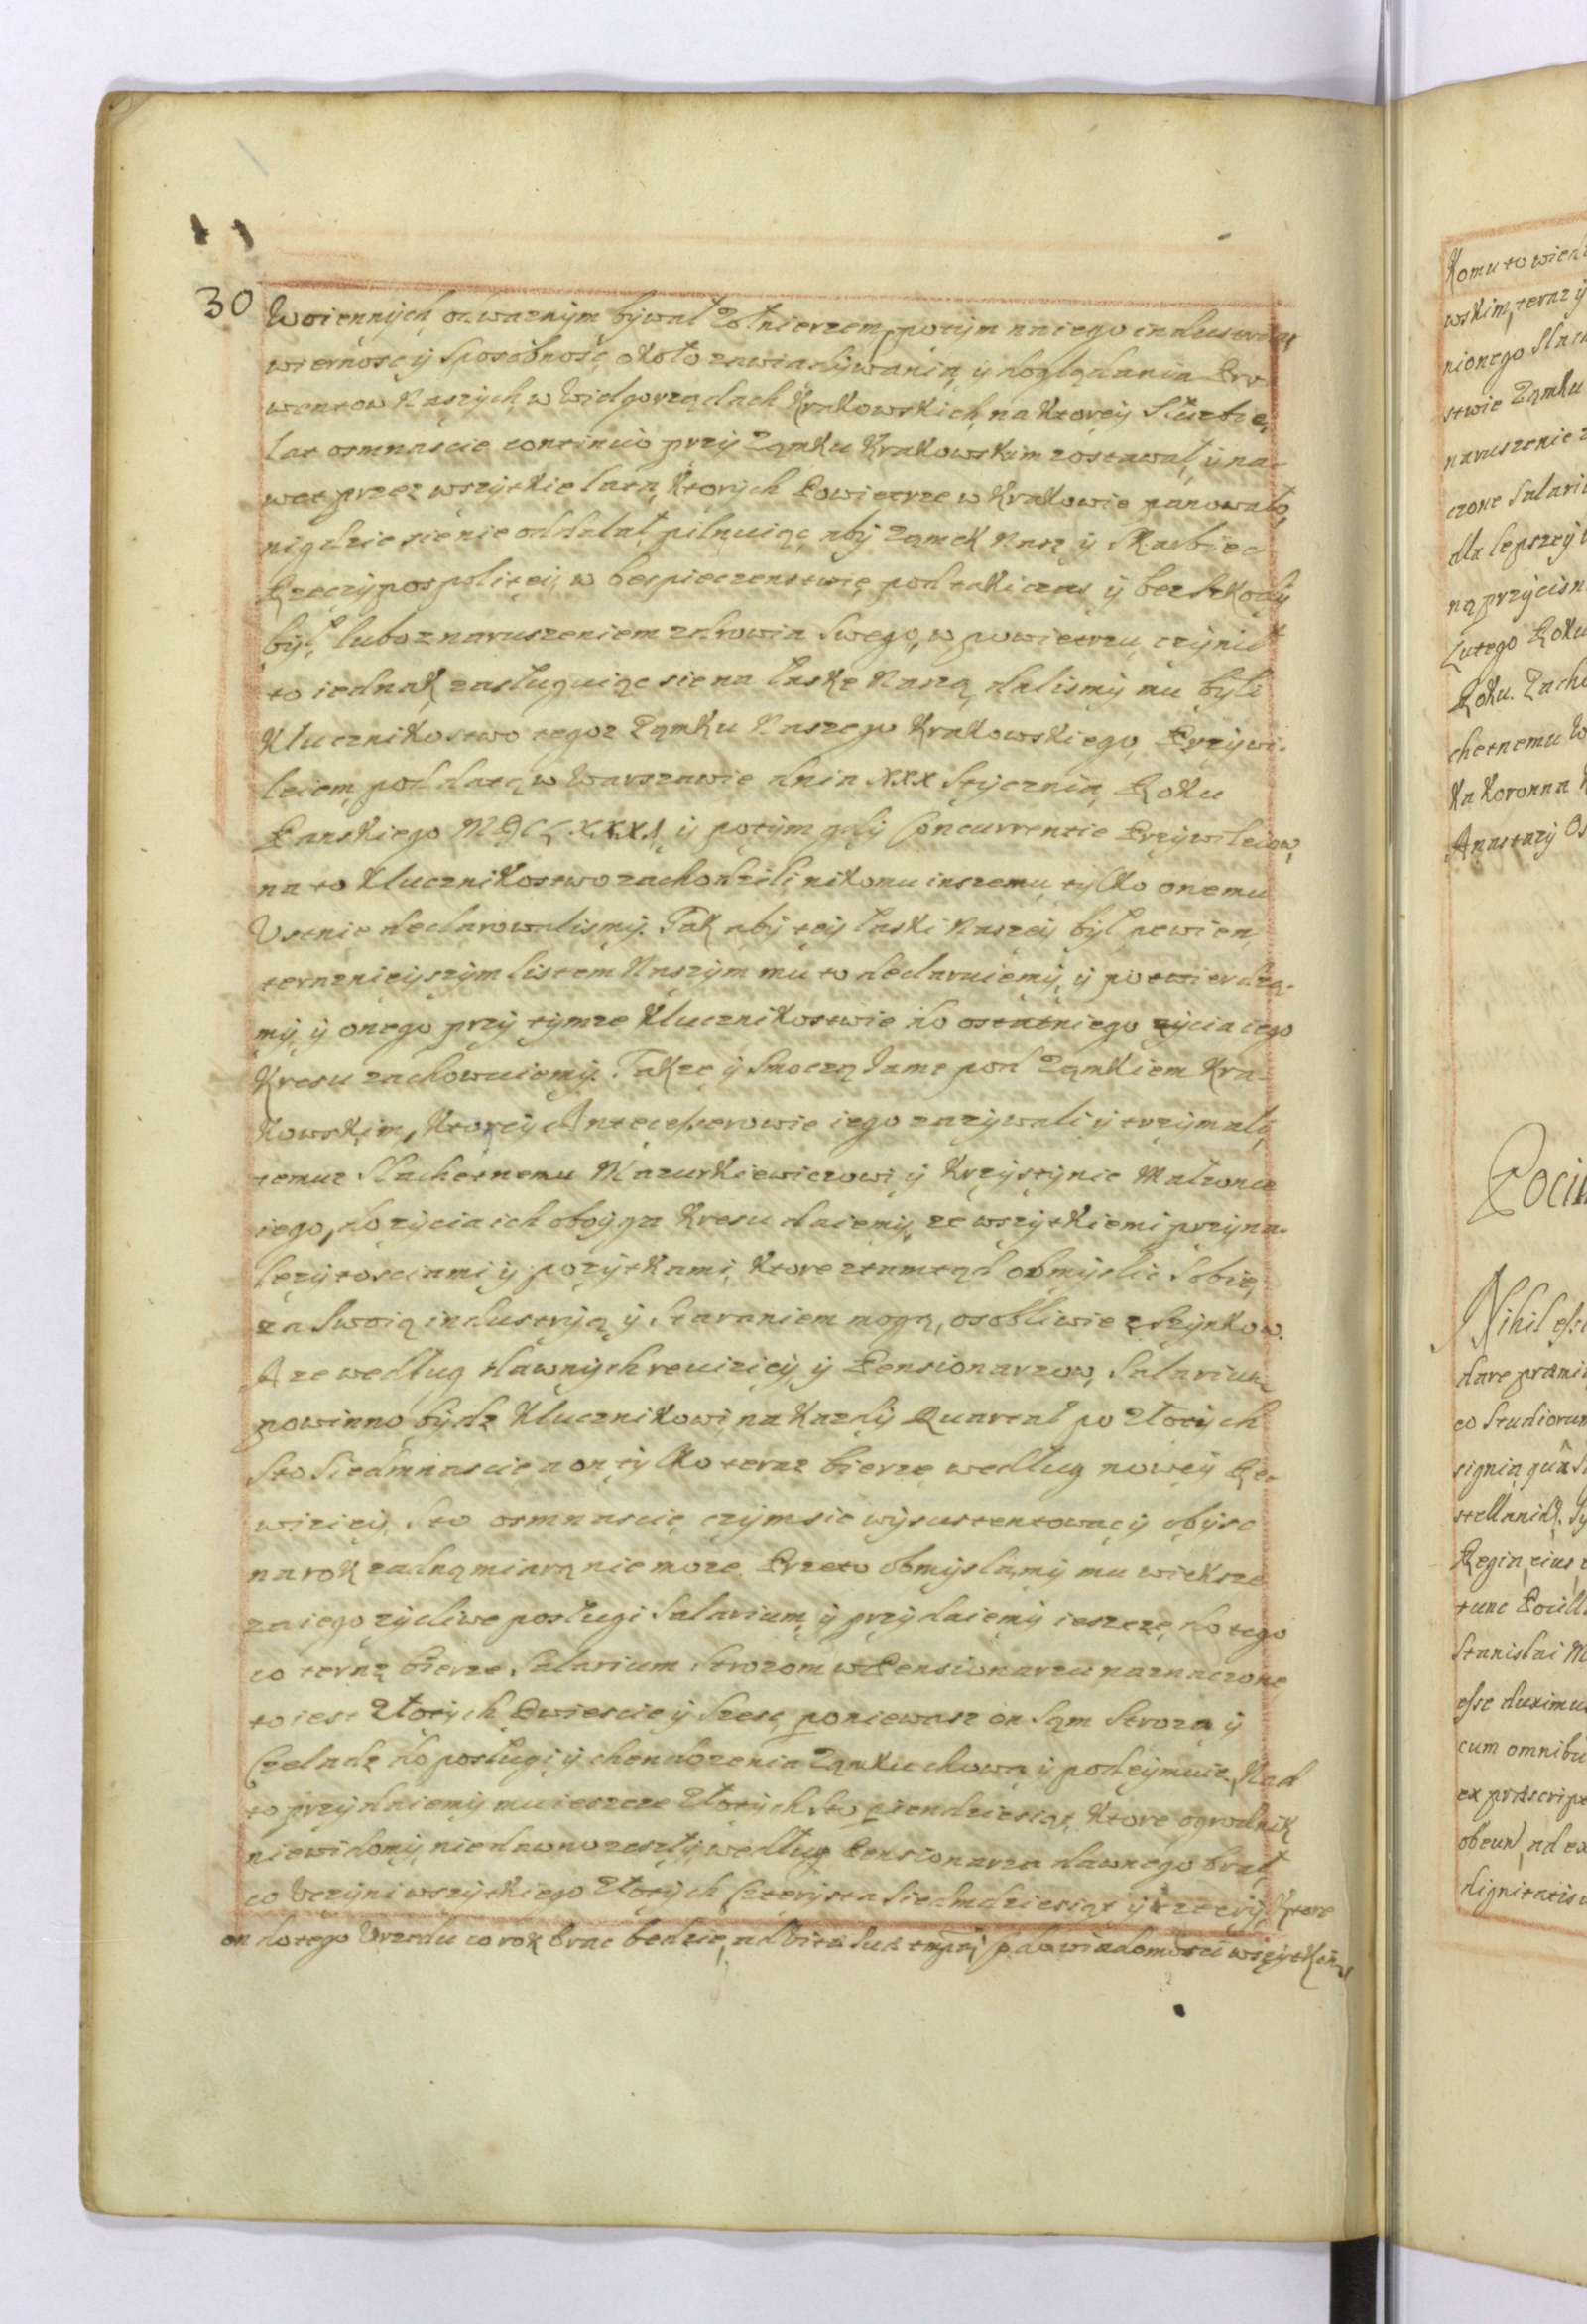 30
Woiennych odwaznym bywał Zołnierzem, potym na iego industrią,
wiernosc y sposobnosc około zawiadywania, y doglądania Pro-
wentow Naszych w Wielgorządach Krakowskich, na ktorey Służbie,
lat osmnascie continuò przy Zamku Krakowskim zostawał, y na-
wet przez wszytkie lata, ktorych Powietrze w Krakowie panowało,
nigdzie sie nie oddalał pilnuiąc aby Zamek Nasz y Skarbiec
Rzeczypospolitey, w bespieczenstwie pod taki czas y bez szkody
był, lubo z naruszeniem zdrowia Swego, w powietrzu czynił
to iednak zasługuiąc sie na łaskę Naszą dalismy mu byli
Klucznikostwo tegoz Zamku Naszego Krakowskiego, Przywi-
leiem pod datą w Warszawie dnia XXX Stycznia, Roku
Panskiego y potym gdy Concurrentie Przywileiow,
na to Klucznikostwo zachodzili, nikomu inszemu, tylko onemu
Ustnie declarowalismy. Tak aby tey łaski Naszey był pewien,
teraznieyszym listem Naszym mu to declaruiemy, y potwierdza-
my, y onego przy tymze Klucznikostwie do ostatniego zycia iego
kresu zachowuiemy. Takze y Smoczą Jame pod Zamkiem Kra-
kowskim, ktorey Antecesserowie iego zazywali y trzymali,
temuz Slachetnemu Mazurkiewiczowi, y Krzystynie Małzonce
iego, do zycia ich oboyga kresu daiemy, ze wszytkiemi przyna-
lezytosciami y pozytkami, ktore ztamtąd obmyslic Sobie,
za Swoią industryą y Staraniem mogą, osobliwie z Szynkow.
A ze według dawnych rewiziey, y Pensionarzow, Salarium
powinno bydz Klucznikowi na kazdy Quartał po Złotych
Sto Siedmnascie a on tylko teraz bierze według nowey Re-
wiziey, Sto osmnascie, czym sie wysustentowac y obysc
na rok zadną miarą nie moze. Przeto obmyslamy mu wieksze
za iego zycliwe posługi Salarium, y przydaiemy ieszcze, do tego
co teraz bierze Salarium Strozom w Pensionarzu naznaczone
to iest Złotych Dwiescie y Szesc, poniewasz on Sam Stroza y
Czeladz do posługi y chendozenia Zamku chowa y podeymuie. Nad
to przydaiemy mu ieszcze Złotych Sto piendziesiąt, ktore ogrodnik
niewidomy, niedawno zeszły, według Pensionarza dawnego brał,
co Uczyni wszytkiego Złotych Czterysta Siedmdziesiąt y cztery, ktore
on do tego Urzedu co rok brac bedzie, do wiadomosci wszytkim

Komu to wied
wskim, teraz y
nionego Slac
stwie Zamku
naruszenie
czone Salari
dla lepszey
ną przycisn
Lutego Roku
Roku. Zach
chetnemu W
ka Koronna
Anastazy Os

Nihil esse
dare præmi
co Studiorum
signia, quâ
Regia, eius
tunc
Stanislai M
esse duximus
cum omnibu
ex præscript
dignitatis